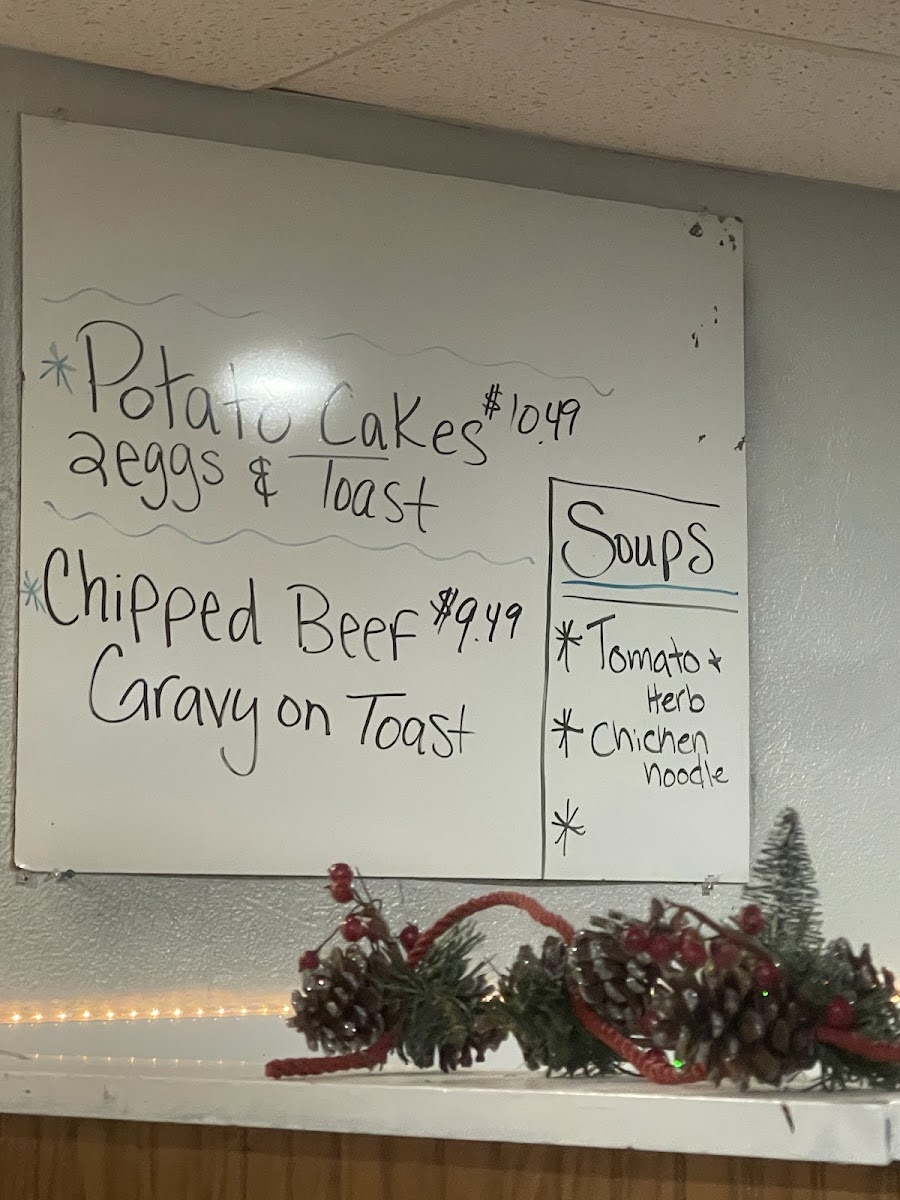 *Potato Cakes $10.49
2eggs & Toast
*Chipped Beef $9.49
Gravy on Toast
Soups
*Tomato &
Herb
*Chichen
noodle
*